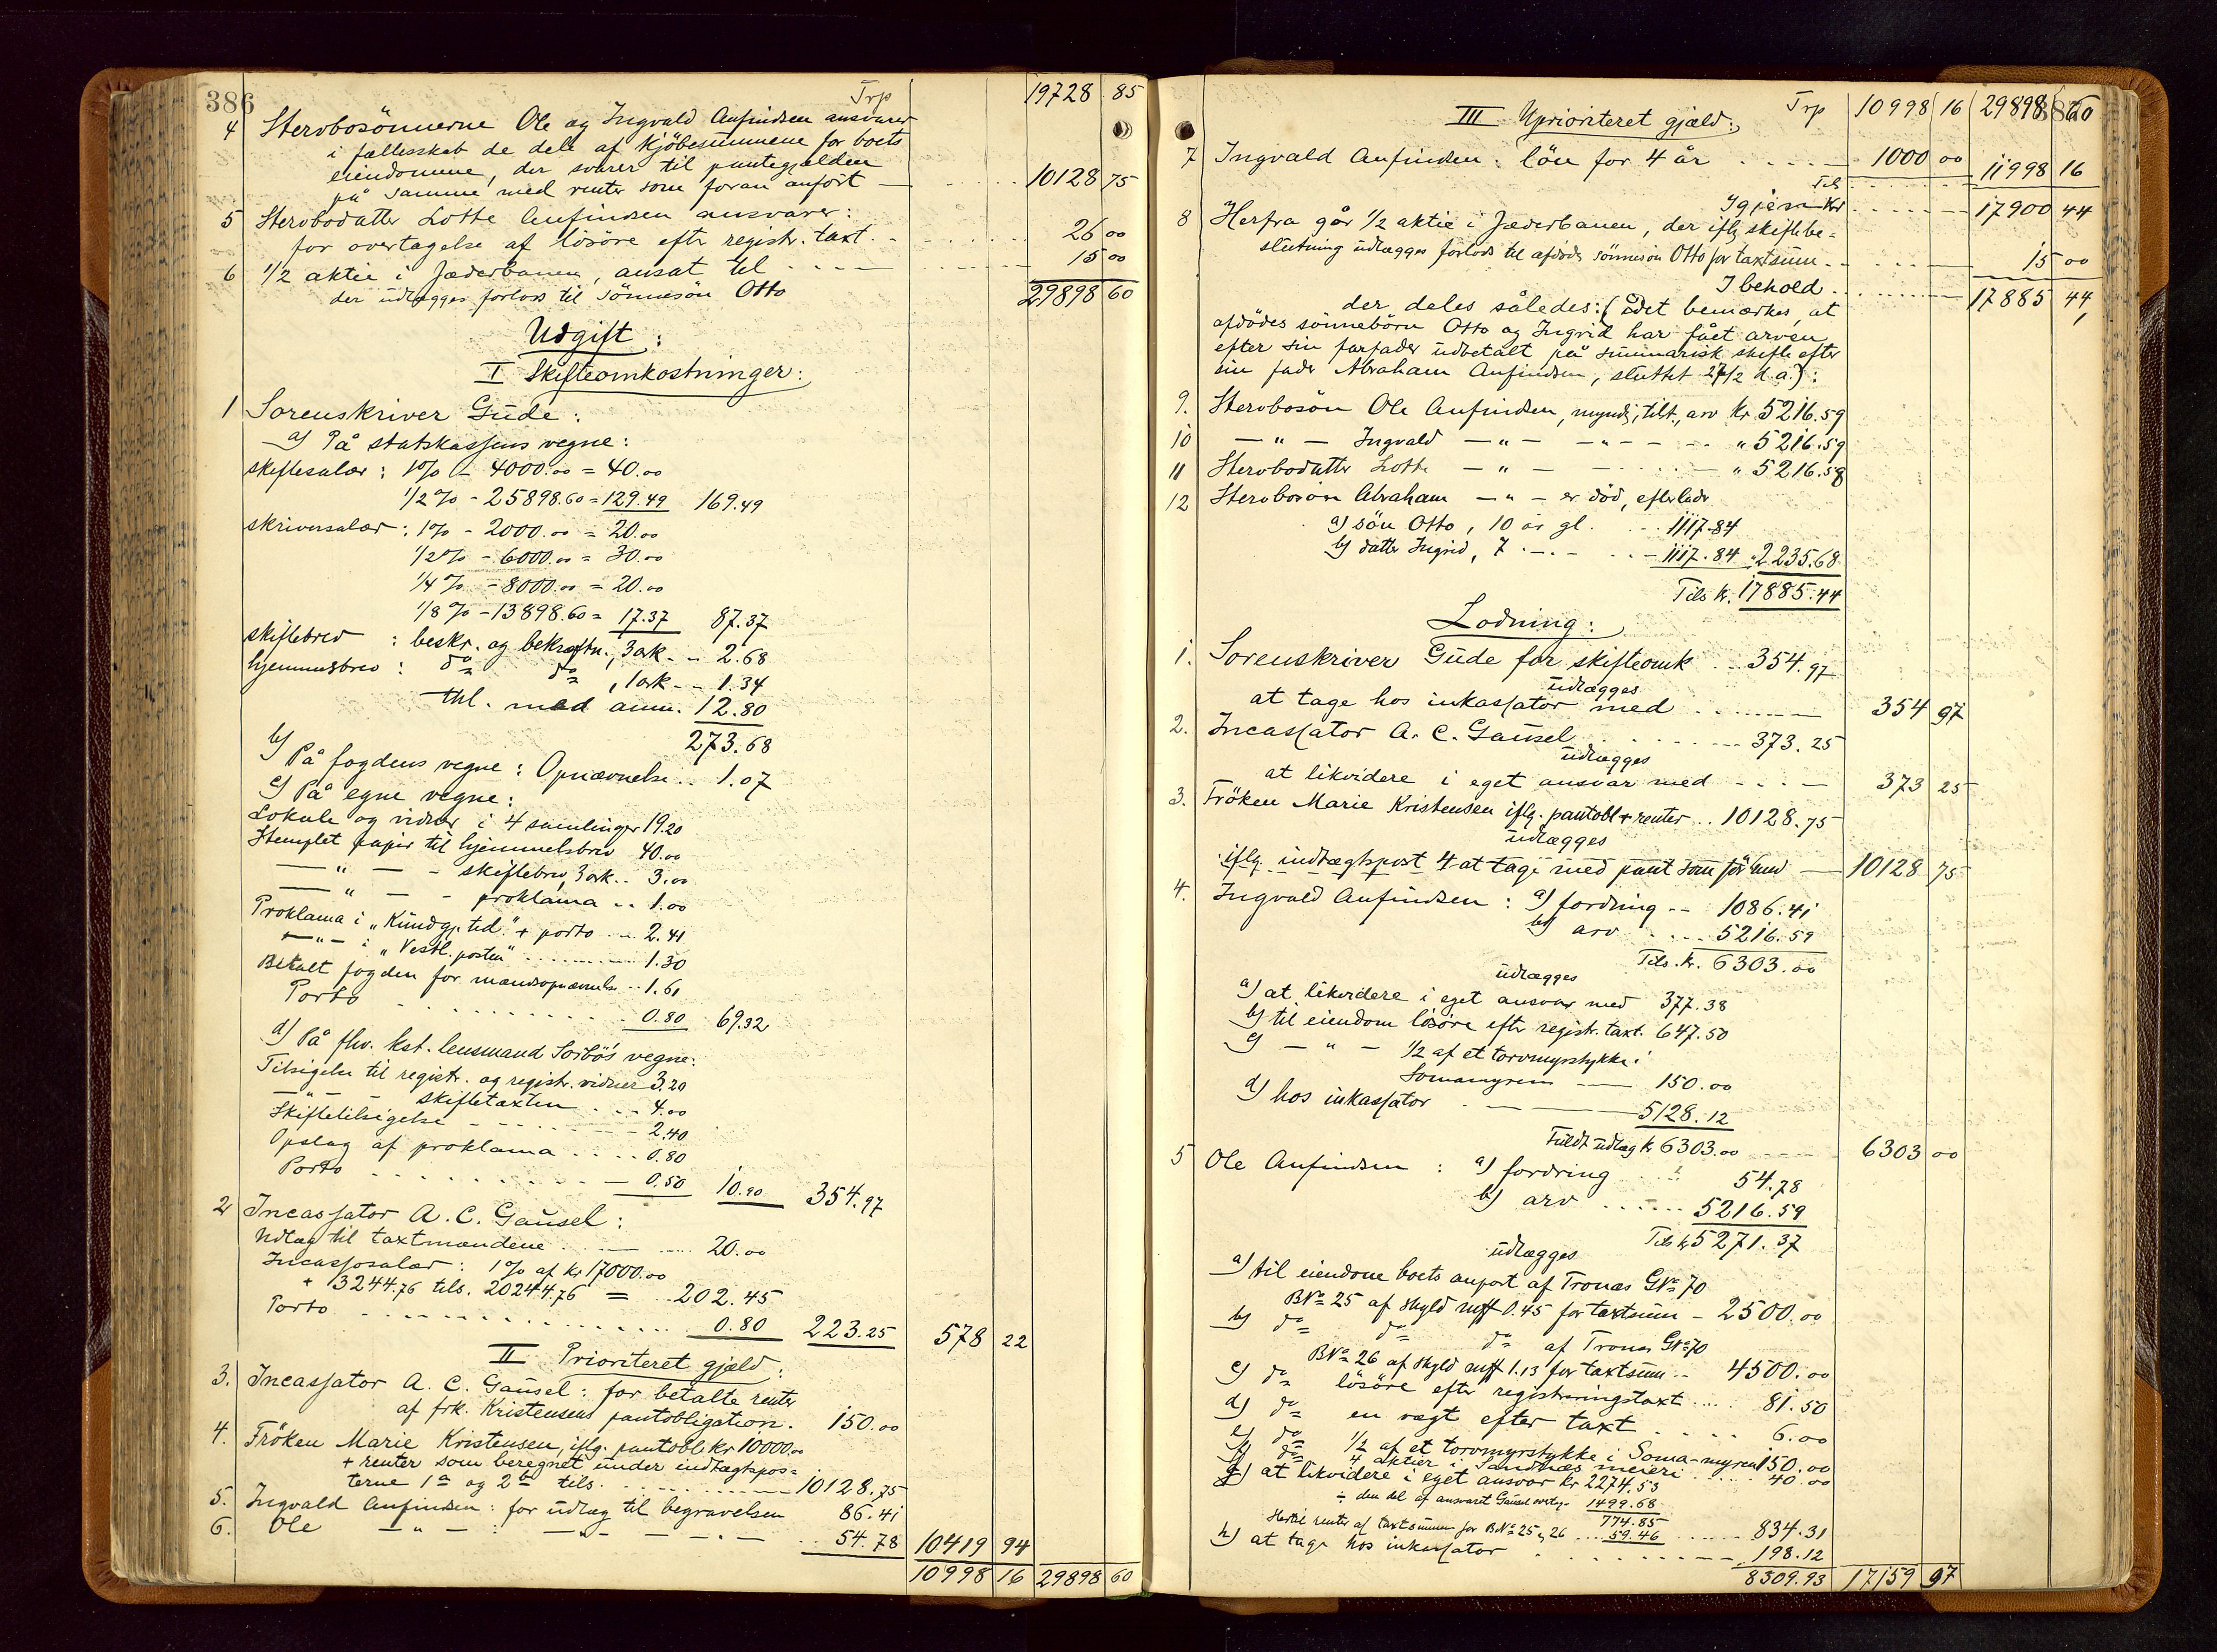 386
Trp 19728 85
4 Stervbosönnerne Ole og Ingvald Anfindsen ansvarer
i fællesskab de dele af kjöbesummene for boets
eiendomme, der svarer til pantegjælden
på samme med renter som foran anfört — 10128 75
5 Stervbodatter Lotte Anfindsen ansvarer:
for overtagelse af lösöre efter registr. taxt. 26 00
6 1/2 aktie i Jæderbanen, ansat til 15 00
der udlægges forlods til sönnesön Otto 29898 60
Udgift:
I Skifteomkostninger:
1 Sorenskriver Gude:
a) På statskassens vegne:
skiftesalær: 1% - 4000.00 = 40.00
1/2% - 25898.60 = 129.49 169.49
skriversalær: 1% - 2000.00 = 20.00
1/2% - 6000.00 = 30.00
1/4% - 8000.00 = 20.00
1/8% - 13898.60 = 17.37 87.37
skiftebrev : beskr. og bekræftn., 3 ark - - 2.68
hjemmelsbrev : do do , 1 ark - - 1.34
thl. med anm. 12.80
273.68
b) På fogdens vegne: Opnævnelse .. 1.07
c) På egne vegne:
Lokale og vidner i 4 samlinger 19.20
Stemplet papir til hjemmelsbrev 40.00
— " — - skiftebrev, 3 ark .. 3.00
— " — - proklama .. 1.00
Proklama i „Kundgj. tid." + porto ... 2.41
— " — i „Vestl. posten" ........ 1.30
Betalt fogden for mandsopnævnelse .. 1.61
Porto 0.80 69.32
d) På fhv. kst. lensmand Sörbö's vegne:
Tilsigelse til registr. og registr. vidner 3.20
— " — - skiftetaxten ... 4.00
Skiftetilsigelse 2.40
Opslag af proklama .... 0.80
Porto 0.50 10.90 354.97
2 Incassator A. C. Gausel:
Udlæg til taxtmændene 20.00
Incassosalær: 1% af kr 17000.00
+ 3244.76 tils. 20244.76 = ..202.45
Porto 0.80 223.25 578 22
II Prioriteret gjæld:
3. Incassator A. C. Gausel: for betalte renter
af frk. Kristensens pantobligation. 150.00
4. Fröken Marie Kristensen, iflg. pantobl. kr 10000.00
+ renter som beregnet under indtægtspos=
terne 1a og 2b tils. 10128.75
5. Ingvald Anfindsen: for udlæg til begravelsen 86.41
6. Ole — " — : — " — - — - — 54.78 10419 94
10998 16 29898 60
387
III Uprioriteret gjæld: Trp 10998 16 29898 60
7 Ingvald Anfindsen: lön for 4 år 1000 00 11998 16
Tils
Igjen Kr 17900 44
8 Herfra går 1/2 aktie i Jæderbanen, der iflg skiftebe=
slutning udlægges forlods til afdödes sönnesön Otto for taxtsum 15 00
I behold 17885 44
der deles således: (idet bemærkes, at
afdödes sönnebörn Otto og Ingrid har fået arven
efter sin farfader udbetalt på summarisk skifte efter
sin fader Abraham Anfindsen, sluttet 27/2 d.a.):
9. Stervbosön Ole Anfindsen, myndi, tilst., arv kr 5216.59
10 — " — Ingvald — " — — " — - - - " 5216.59
11 Stervbodatter Lotte — " — — " 5216.58
12 Stervbosön Abraham — " — er död, efterlader
a) sön Otto, 10 år gl. ... 1117.84
b) datter Ingrid, 7 - — - ... 1117.84 " 2235.68
Tils kr. 17885.44
Lodning:
1. Sorenskriver Gude for skifteomk ... 354.97
udlægges
at tage hos inkassator med 354 97
2. Incassator A. C. Gausel 373.25
udlægges
at likvidere i eget ansvar med 373 25
3. Fröken Marie Kristensen iflg. pantobl + renter .. 10128.75
udlægges
iflg. indtægtspost 4 at tage med pant som för 10128 75
4. Ingvald Anfindsen: a) fordring -- 1086.41
b) arv .... 5216.59
Tils. kr. 6303.00
udlægges
a) at likvidere i eget ansvar med 377.38
b) til eiendom lösöre efter registr. taxt. 647.50
c) — " — 1/2 af et torvmyrstykke i
Somamyren — 150.00
d) hos inkassator 5128.12
Fuldt udlæg kr 6303.00 6303 00
5 Ole Anfindsen : a) fordring 54.78
b) arv 5216.59
Tils kr 5271.37
udlægges
a) til eiendom boets anpart af Tronæs GNo 70
BNo 25 af skyld mk 0.45 for taxtsum - 2500.00
b) do do do af Tronæs GNo 70
BNo 26 af skyld mk 1.13 for taxtsum .. 4500.00
c) do lösöre efter registreringstaxt .... 81.50
d) do en vægt efter taxt 6.00
e) do 1/2 af et torvmyrstykke i Soma-myren 150.00
f) do 4 aktier i Sandnæs meieri 40.00
g) at likvidere i eget ansvar kr 2274.53
÷ den del af ansvaret Gausel overtog 1499.68
774.85
Hertil renter af taxtsummen for BNo 25 og 26 ... 59.46 834.31
h) at tage hos inkassator 198.12
8309.93 17159 97